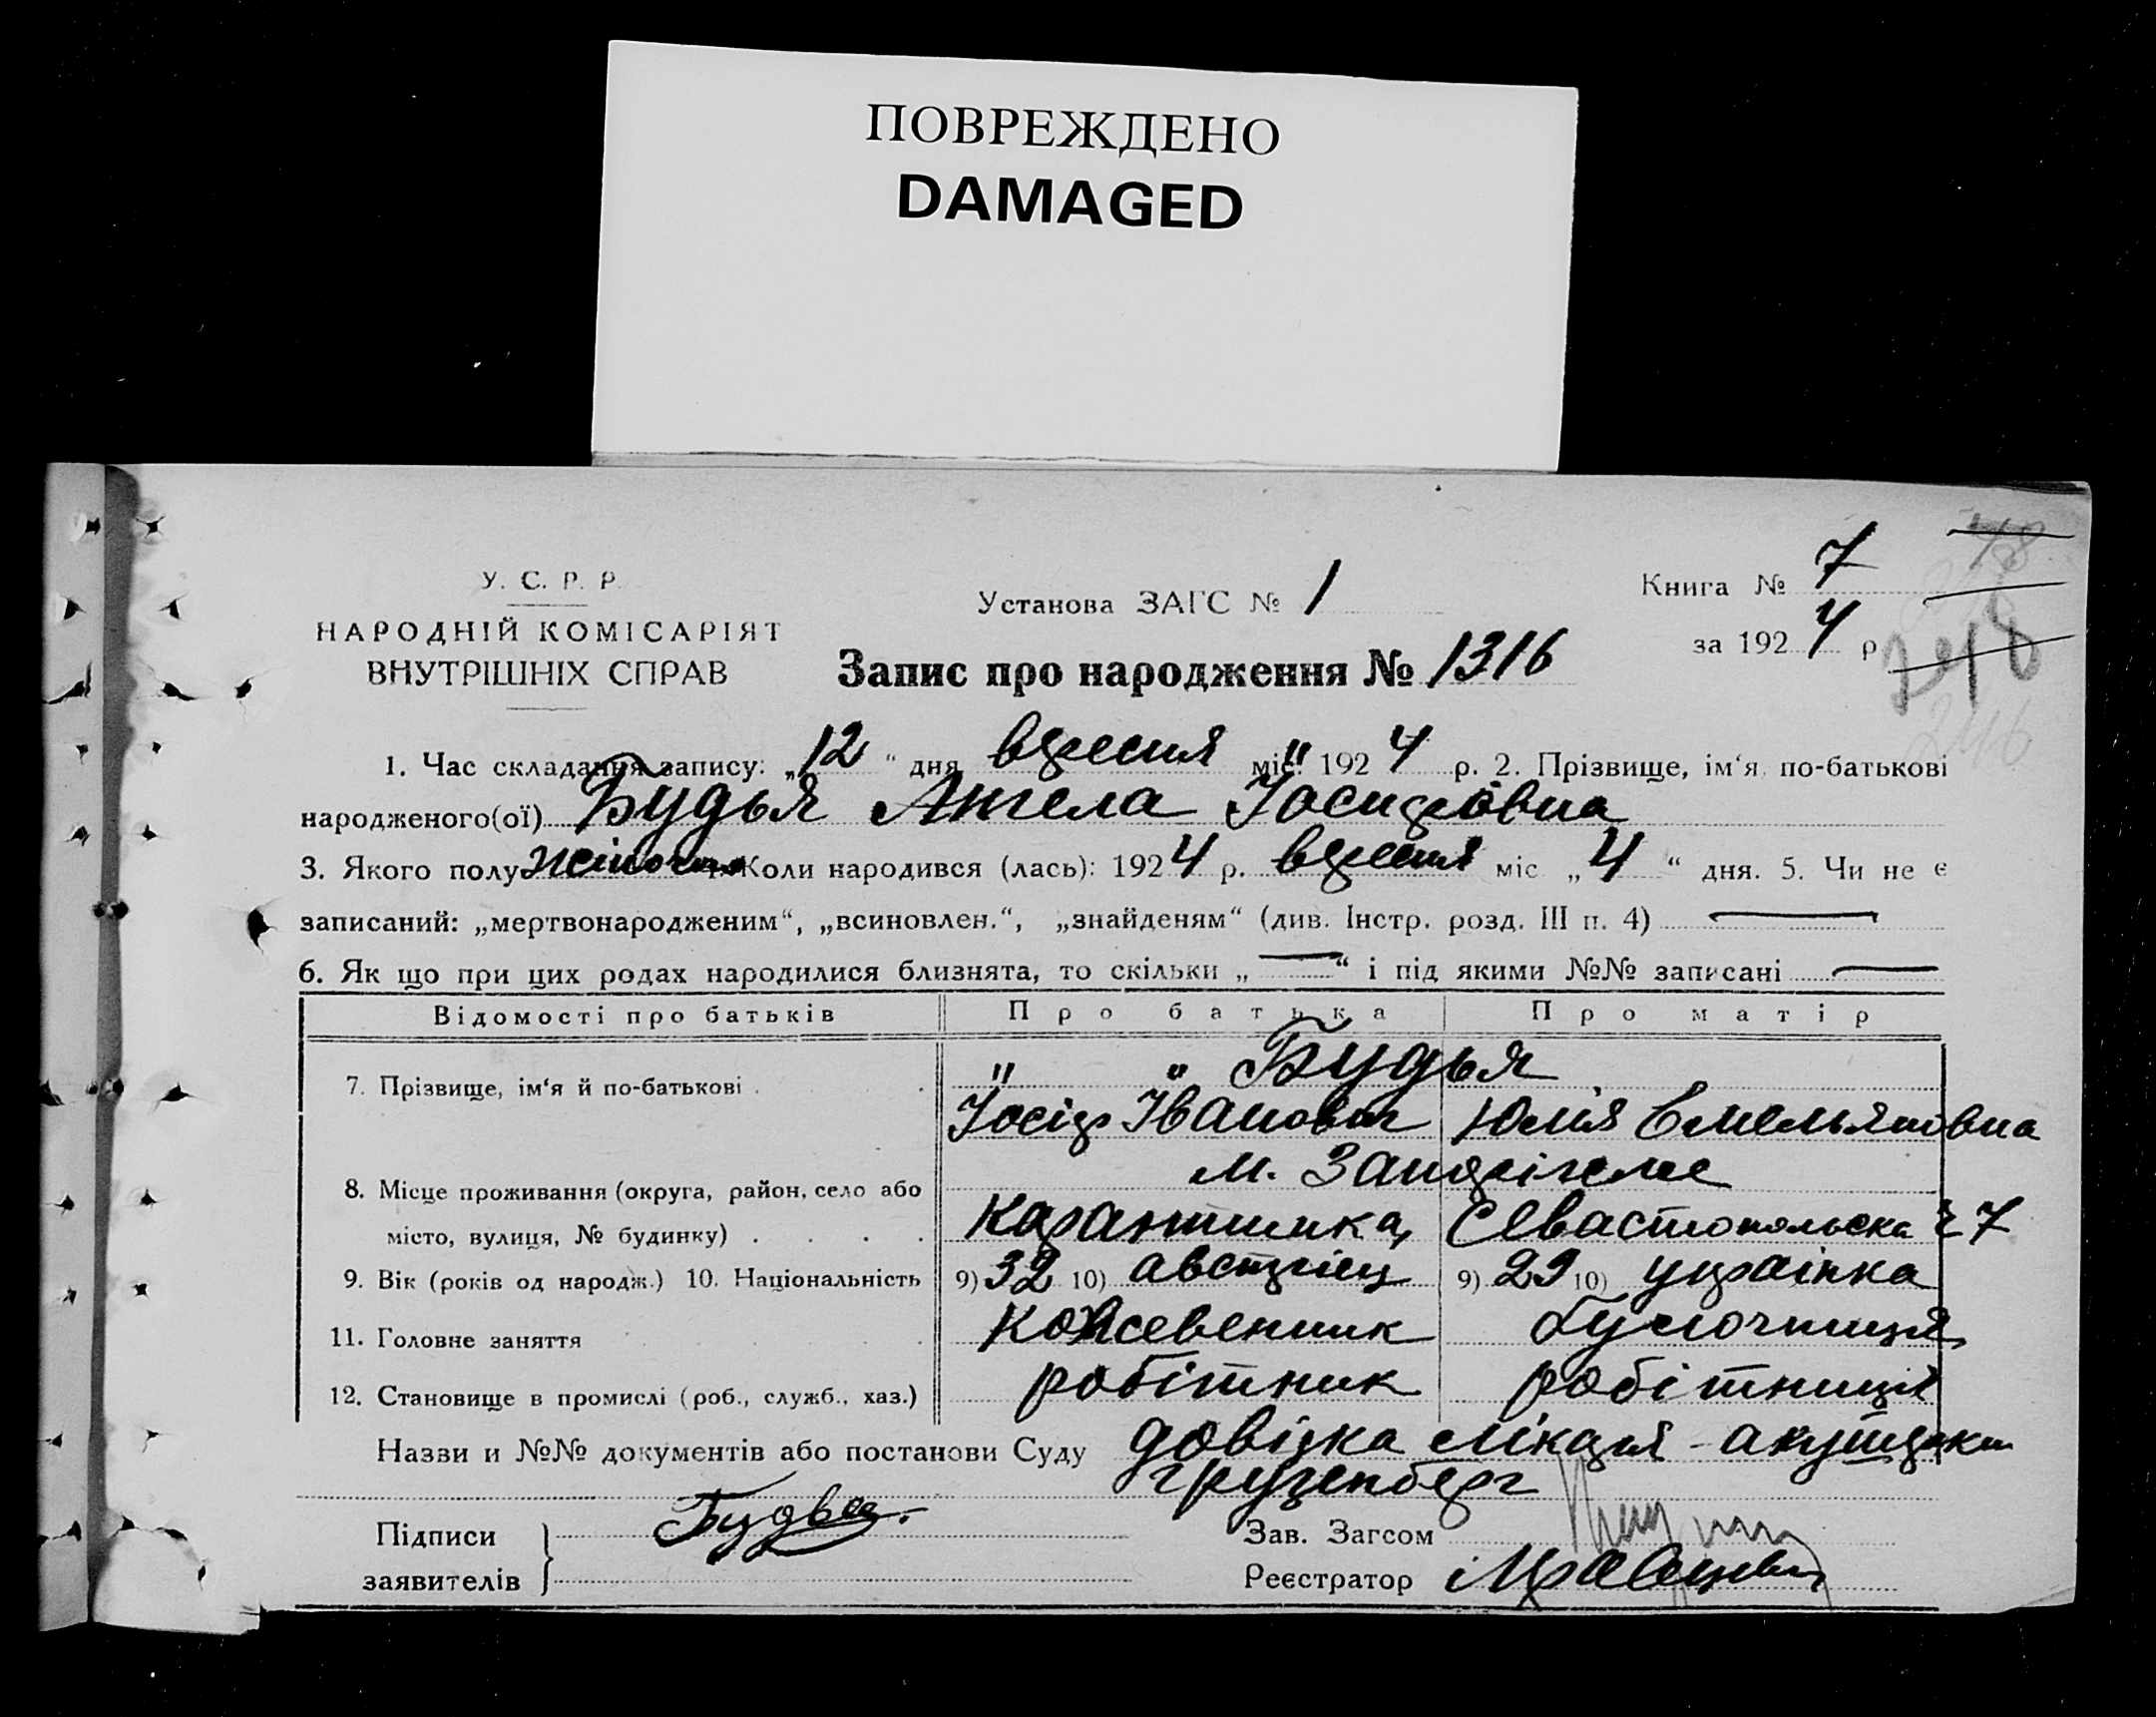 ПОВРЕЖДЕНО
DAMAGED
У. С. Р. Р.
НАРОДНІЙ КОМІСАРІЯТ
ВНУТРІШНІХ СПРАВ
Установа ЗАГС № 1
Книга № 7
за 1924 р
Запис про народження № 1316
1. Час складання запису: „12“ дня вересня міс. 1924 р. 2. Прізвище, ім‘я, по-батькові
народженого(ої) Будья Ангела Іосифовна
3. Якого полу жіночого 4. Коли народився (лась): 1924 р. вересня міс „4“ дня. 5. Чи не є
записаний: „мертвонародженим“, „всиновлен.“, „знайденям“ (див. Інстр. розд. III п. 4)
6. Як що при цих родах народилися близнята, то скільки „—“ і під якими №№ записані —
Відомості про батьків Про батька Про матір
7. Прізвище, ім‘я й по-батькові " " Будья
Іосіф Іванович Юлія Емельяновна
м. Запоріжже
8. Місце проживання (округа, район, село або
місто, вулиця, № будинку) Карантинка, Севастопольска 7
9. Вік (років од народж.) 10. Національність 9) 32 10) австрієц 9) 29 10) украінка
11. Головне заняття Кожевенник булочниця
12. Становище в промислі (роб., служб., хаз.) робітник робітниця
Назви и №№ документів або постанови Суду довідка лікаря - акушерки
Грузенберг
Підписи заявителів Будья.
Зав. Загсом
Реєстратор